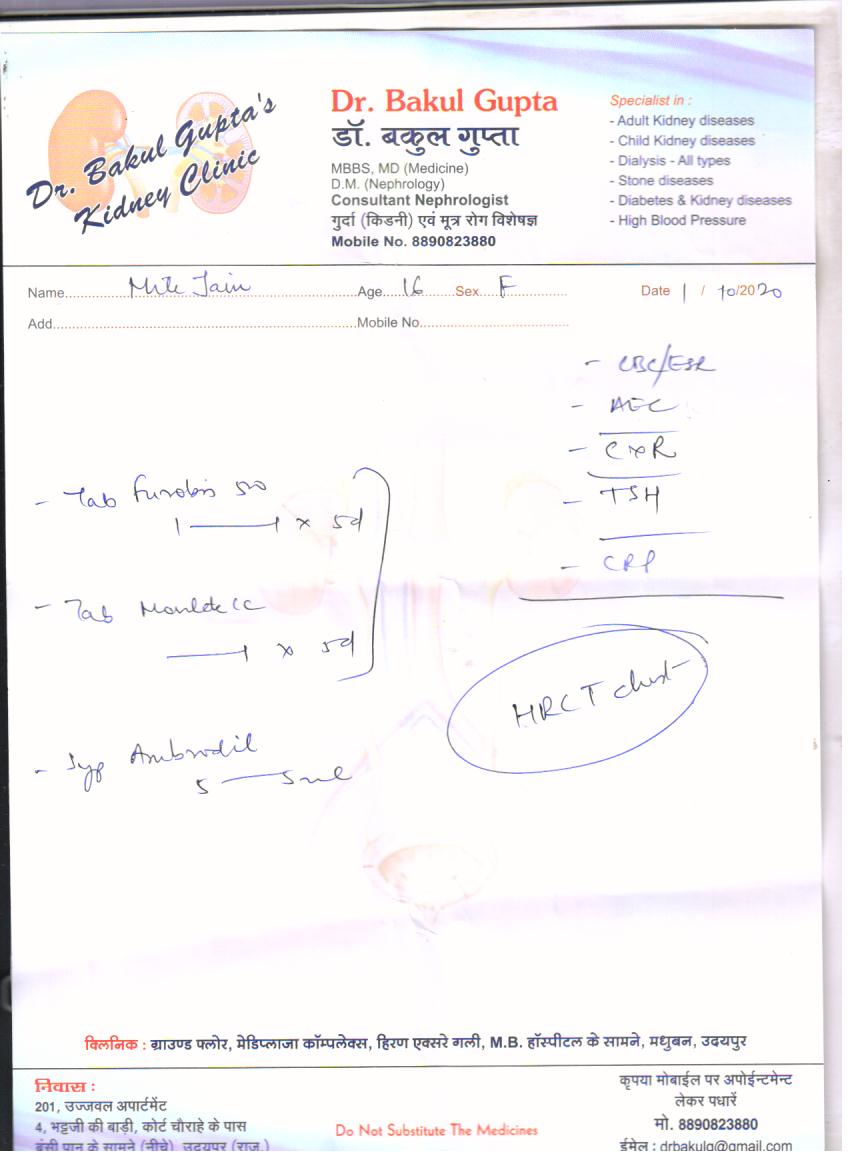 Dr. Bakul Gupta's
Kidney Clinic
Dr. Bakul Gupta
डॉ. बकुल गुप्ता
MBBS, MD (Medicine)
D.M. (Nephrology)
Consultant Nephrologist
गुर्दा (किडनी) एवं मूत्र रोग विशेषज्ञ
Mobile No. 8890823880
Specialist in :
- Adult Kidney diseases
- Child Kidney diseases
- Dialysis - All types
- Stone diseases
- Diabetes & Kidney diseases
- High Blood Pressure
Name Jain Age 16 Sex F Date 1 / 10/2020
Add Mobile No
- CBC/ESR
- AEC
- CXR
- TSH
- CRP
- Tab 500
1 — 1 x 5d
- Tab LC
— 1 x 5d
HRCT chest
- Syp Ambrodil
5 — 5ml
क्लिनिक : ग्राउण्ड फ्लोर, मेडिप्लाजा कॉम्पलेक्स, हिरण एक्सरे गली, M.B. हॉस्पीटल के सामने, मधुबन, उदयपुर
निवास :
201, उज्जवल अपार्टमेंट
4, भट्टजी की बाड़ी, कोर्ट चौराहे के पास
बंसी पान के सामने (नीचे), उदयपुर (राज.)
Do Not Substitute The Medicines
कृपया मोबाईल पर अपोईन्टमेन्ट
लेकर पधारें
मो. 8890823880
ईमेल : drbakulg@gmail.com